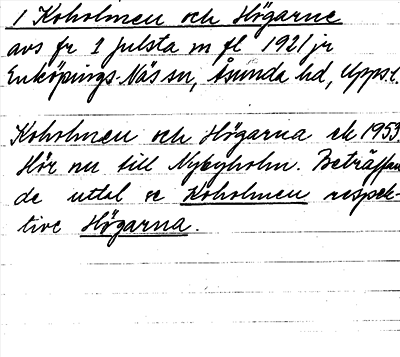 1 Koholmen och Högarne
avs fr 1 Julsta m fl 1921 jr
Enköpings-Näs sn, Åsunda hd, Upps.l.
Koholmen och Högarna ek 1953.
Hör nu till Nybyholm. Beträffan
de uttal se Koholmen respek-
tive Högarna.